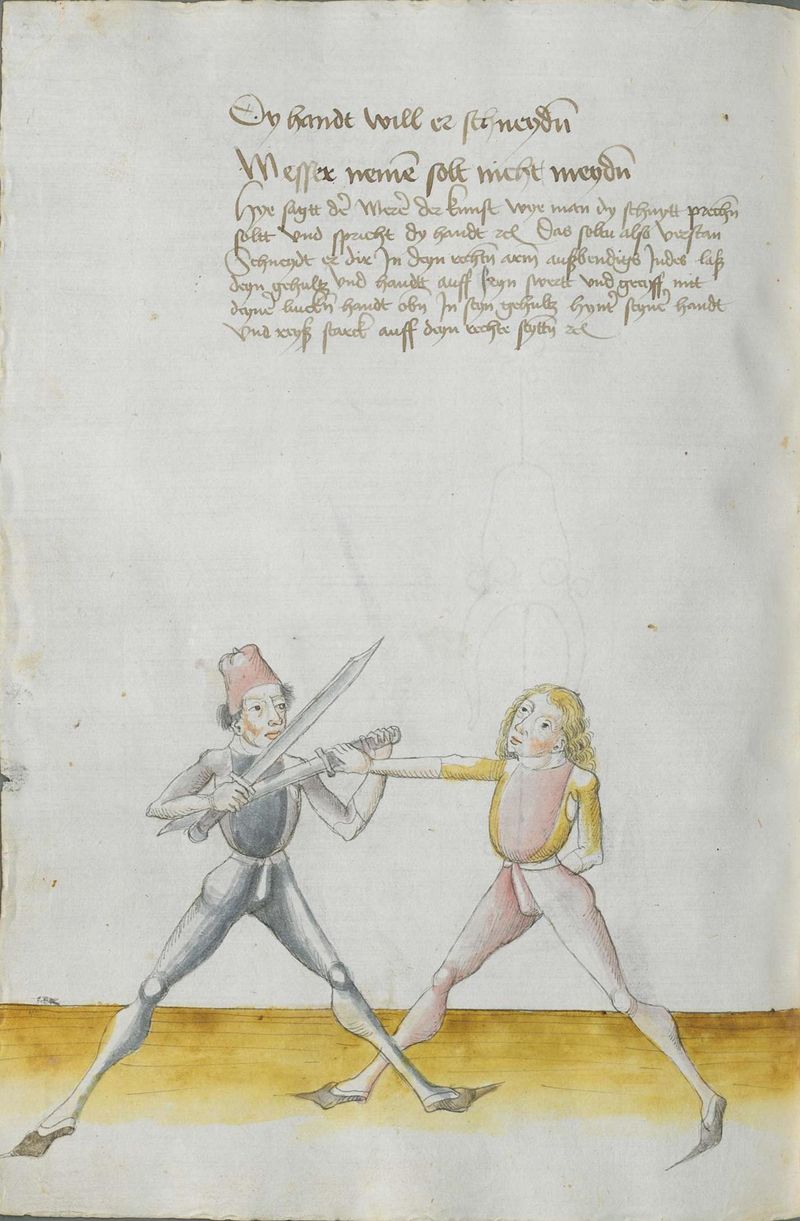 Dy handt will er schneydn̄
Messer nemē solt nicht meydn̄
Hye sagtt der̄ Merer̄ der kunst wye man dy schnytt prechn̄
soltt Und spricht dy handt rc Das soltu also verstan
Schneydt er dir In deyn rechtn̄ arm außbendigs Indes laß
deyn gehultz Und handt auff seyn swert Und greyff mit
deyner̄ linckn̄ handt obn̄ In seyn gehultz hyntr̄ seyner̄ handt
Und reyß starck auff deyn rechte seyttn̄ rc